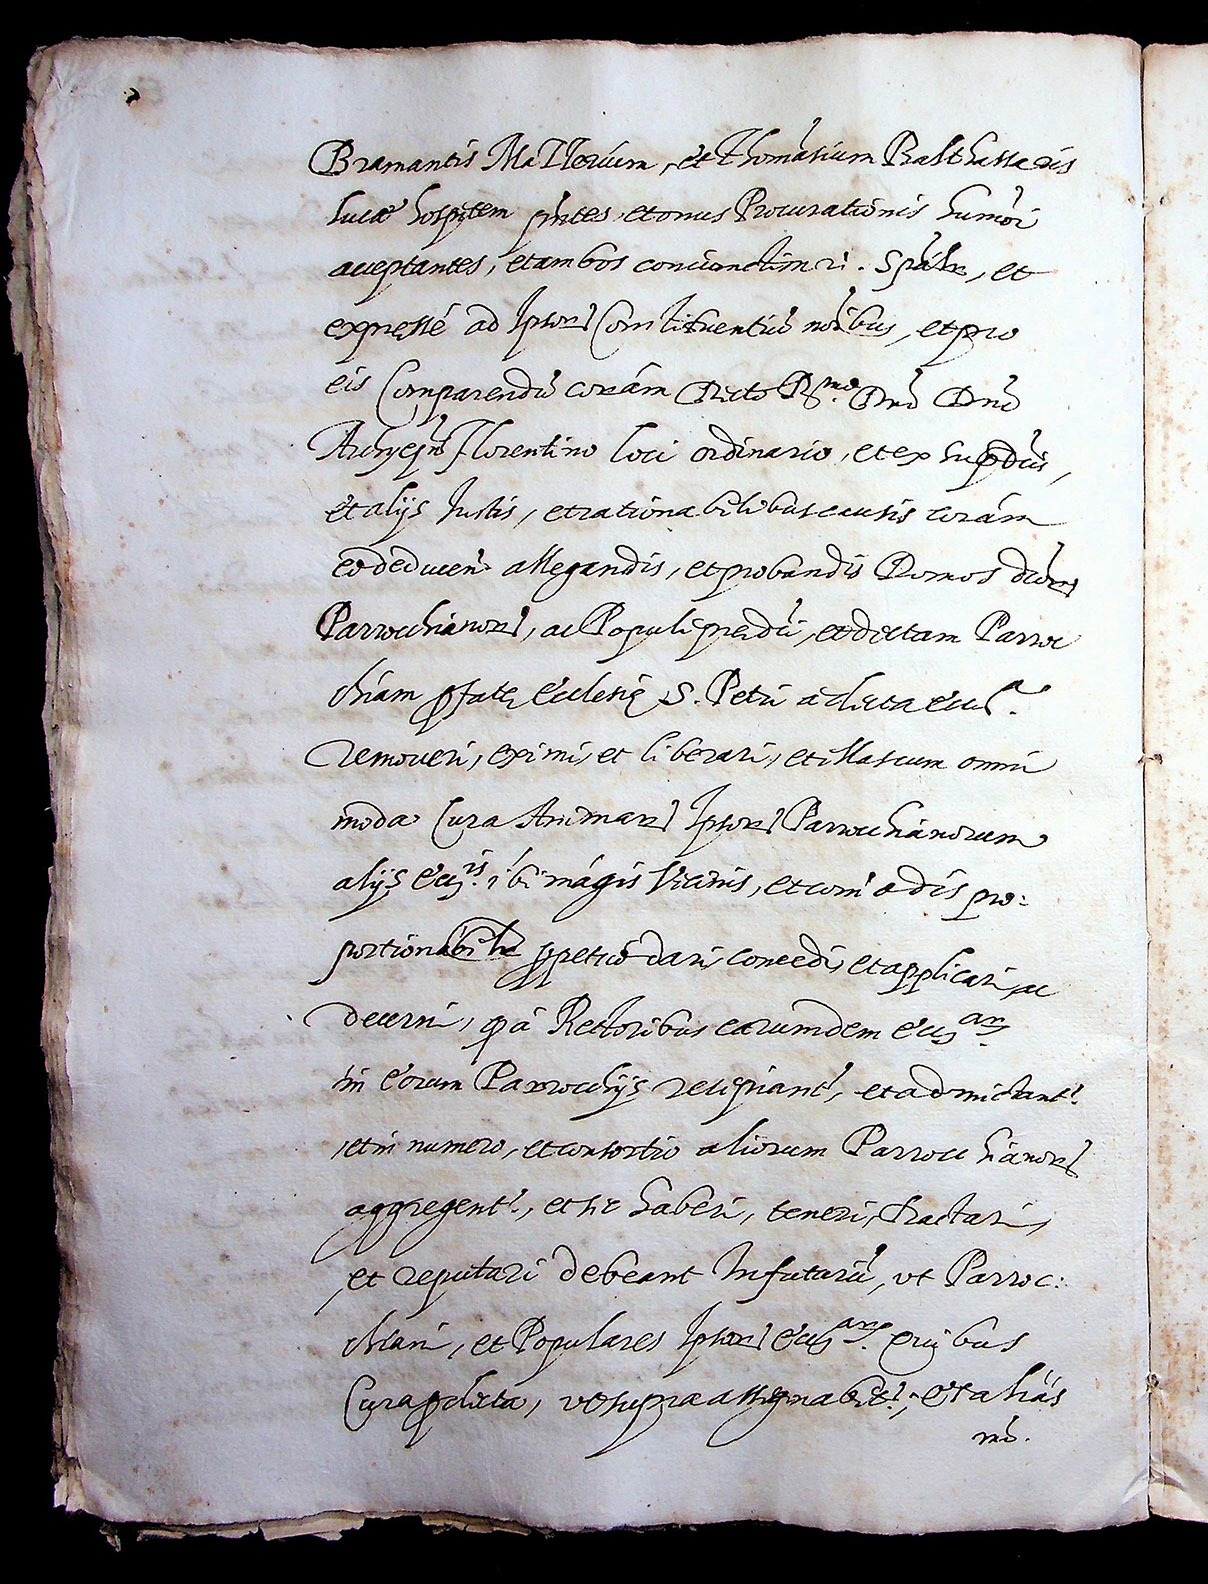 Bramantis Mallerium, et Thomasium Balthassaris
luce hospitem pñtes, et onus Procurationis humõi
aceptantes, et ambos coniunctim ri. spãlr, et
expressé ad Ipsor Constituentiũ noĩbus, et pro
eis Comparendũ coram Dicto Rmo Dnõ Dnõ
Archyepõ Florentino loci ordinario, et ex supdĩis,
et alijs Iustis, et rationabilibus causis coram
eo deducen allegandis, et probandis Domos dĩor
Parrochianor, ac Populi predĩi, et dictam Parroc
chiam pfatę Ecclesię S. Petri a dicta eccla
removeri, eximi, et liberari, et illas cum omni
moda Cura Animar Ipsor Parrocchianorum
alijs Eccis ibi magis Vicinis, et comodis pro:
portionabilr ppetuo dari, concedi, et applicari, ac
decerni, q a Rectoribus earumdem Eccar
in eorum Parrocchijs recipiant, et admictant
et in numero, et consortio aliorum Parrocchianor
aggregent, et sic haberi, teneri, tractari,
et reputari debeant In futurũ, ut Parroc:
chiani, et Populares Ipsor Eccar quibus
Cura pdicta, ut supra assignabit, et alias